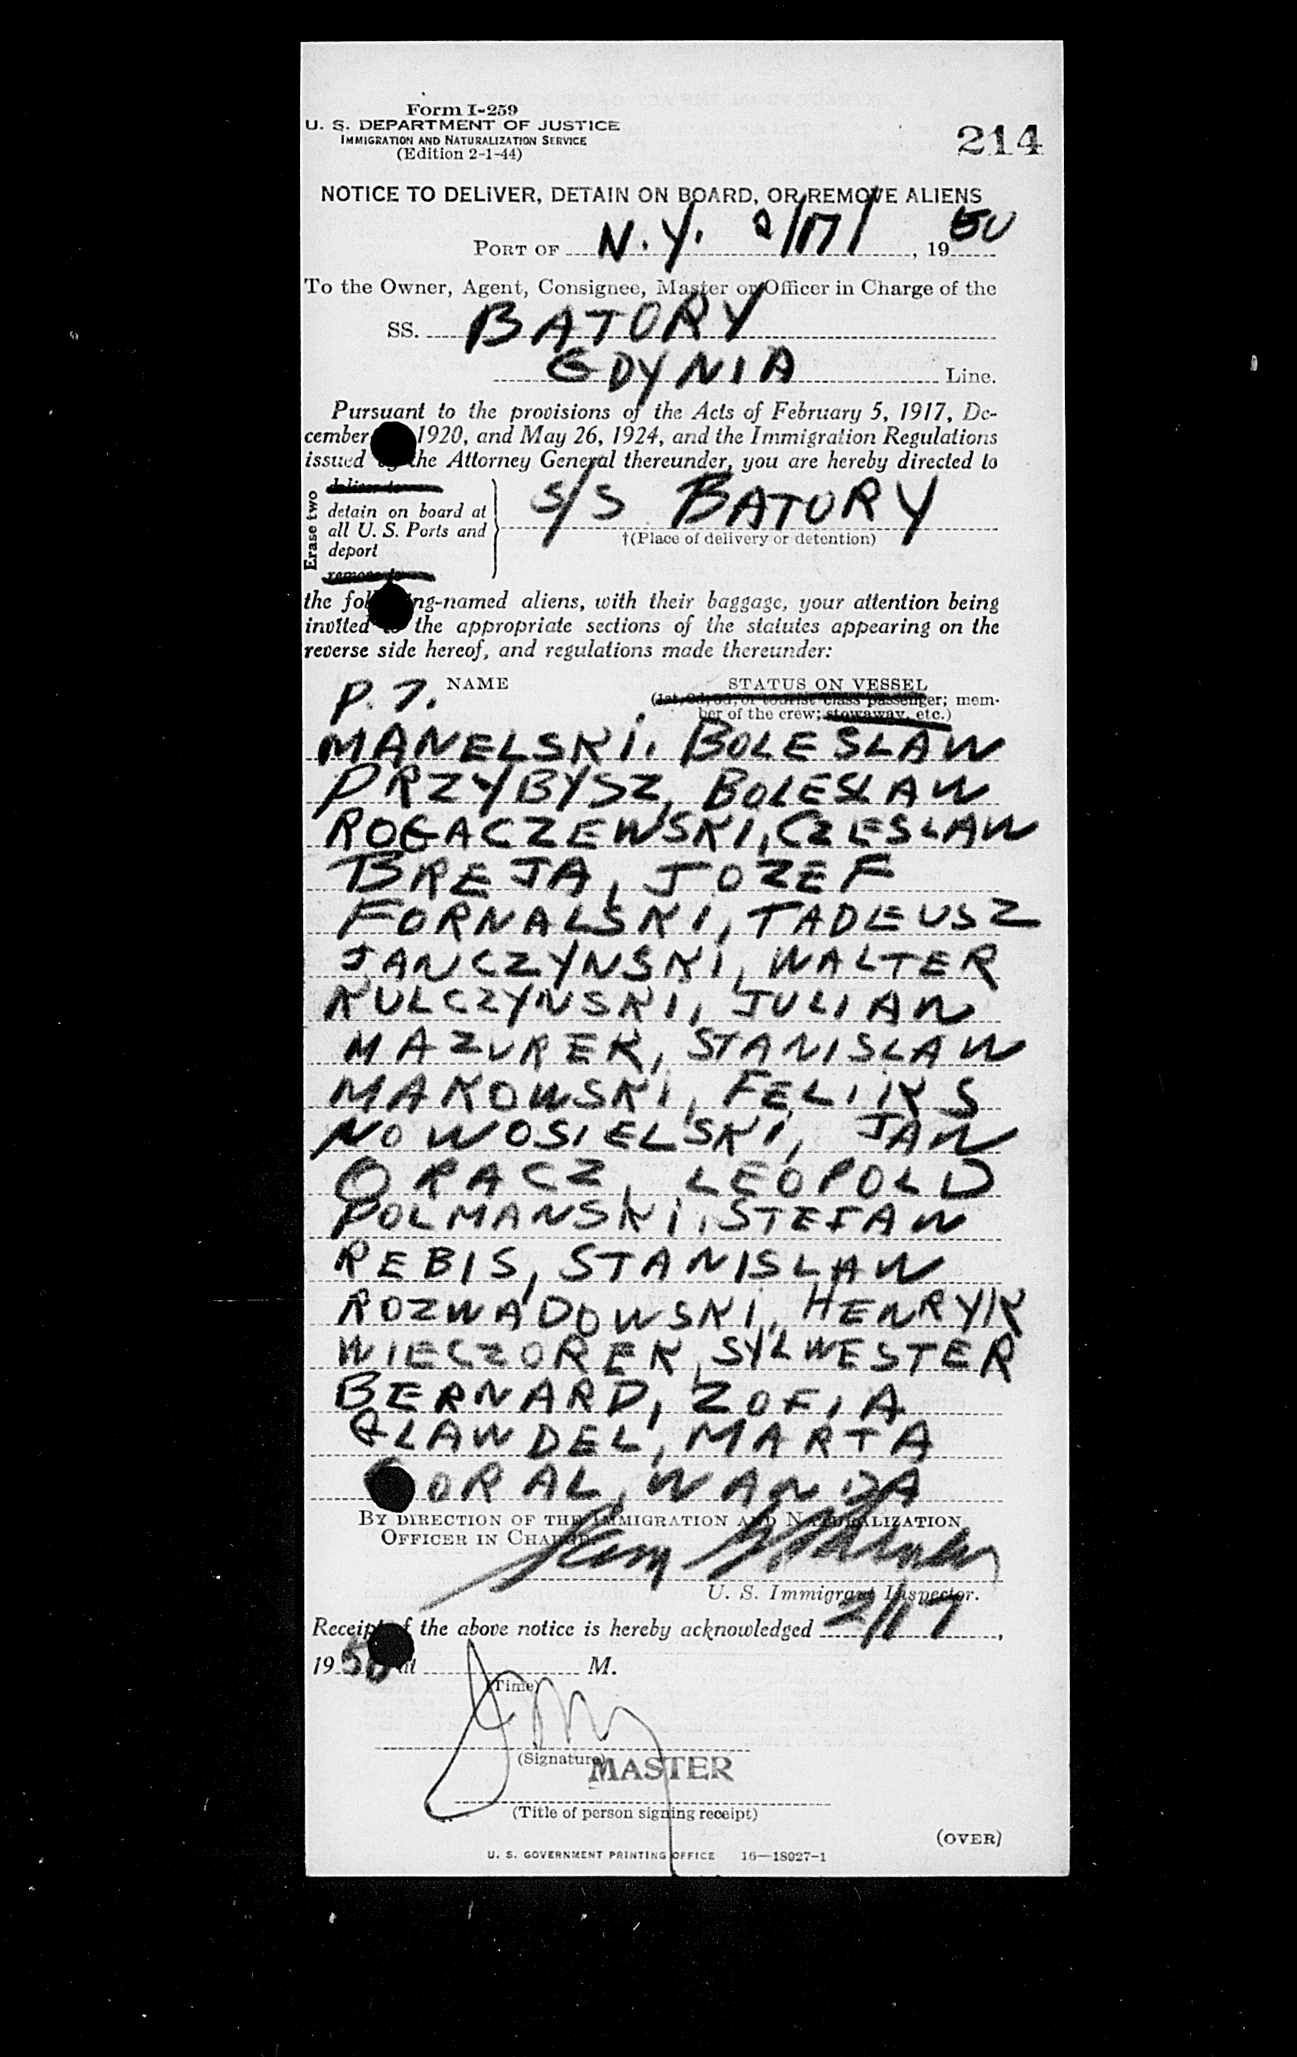 Form I-259
U. S. DEPARTMENT OF JUSTICE
IMMIGRATION AND NATURALIZATION SERVICE
(Edition 2-1-44)
214
NOTICE TO DELIVER, DETAIN ON BOARD, OR REMOVE ALIENS
PORT OF N.Y. 2/17/, 1950
To the Owner, Agent, Consignee, Master or Officer in Charge of the
SS. BATORY
GDYNIA Line.
Pursuant to the provisions of the Acts of February 5, 1917, De-
cember 1920, and May 26, 1924, and the Immigration Regulations
issued by the Attorney General thereunder, you are hereby directed to
Erase two
deliver to
detain on board at
all U. S. Ports and
deport
remove to
S/S BATORY
†(Place of delivery or detention)
the following-named aliens, with their baggage, your attention being
invited to the appropriate sections of the statutes appearing on the
reverse side hereof, and regulations made thereunder:
P. 7. NAME STATUS ON VESSEL
(1st, 2d, 3d, or tourist class passenger; mem-
ber of the crew; stowaway, etc.)
MANELSKI, BOLESLAW
PRZYBYSZ, BOLESLAW
ROGACZEWSKI, CZESLAW
BREJA, JOZEF
FORNALSKI, TADEUSZ
JANCZYNSKI, WALTER
KULCZYNSKI, JULIAN
MAZUREK, STANISLAW
MAKOWSKI, FELIKS
NOWOSIELSKI, JAN
ORACZ, LEOPOLD
POLMANSKI, STEFAN
REBIS, STANISLAW
ROZWADOWSKI, HENRYK
WIECZOREK, SYLWESTER
BERNARD, ZOFIA
GLAWDEL, MARTA
GORAL, WANDA
BY DIRECTION OF THE IMMIGRATION AND NATURALIZATION
OFFICER IN CHARGE
U. S. Immigrant Inspector.
Receipt of the above notice is hereby acknowledged 2/17,
1950 at M.
(Time)
(Signature)
MASTER
(Title of person signing receipt)
(OVER)
U. S. GOVERNMENT PRINTING OFFICE 16—18027-1